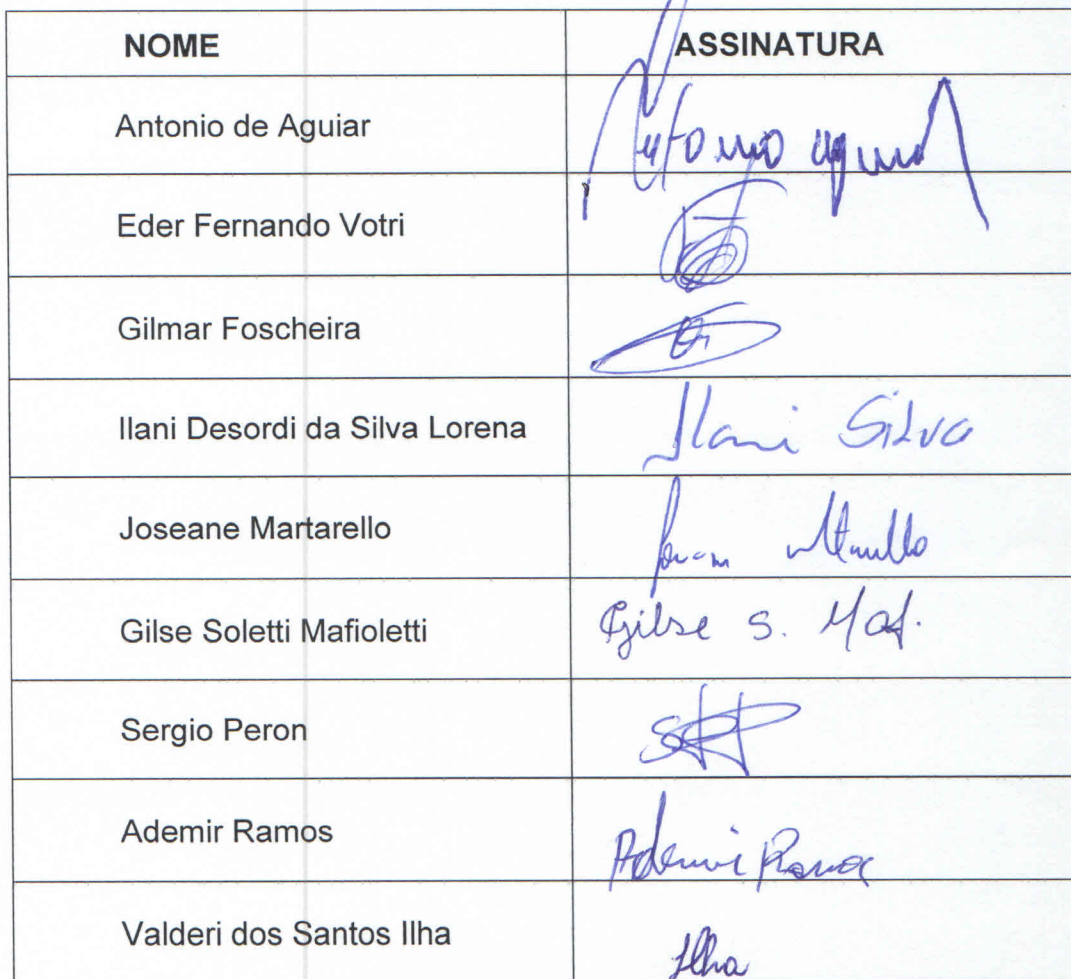 NOME ASSINATURA
Antonio de Aguiar Antonio Aguiar
Eder Fernando Votri
Gilmar Foscheira
Ilani Desordi da Silva Lorena Ilani Silva
Joseane Martarello
Gilse Soletti Mafioletti Gilse S. Maf.
Sergio Peron
Ademir Ramos Ademir
Valderi dos Santos Ilha Ilha